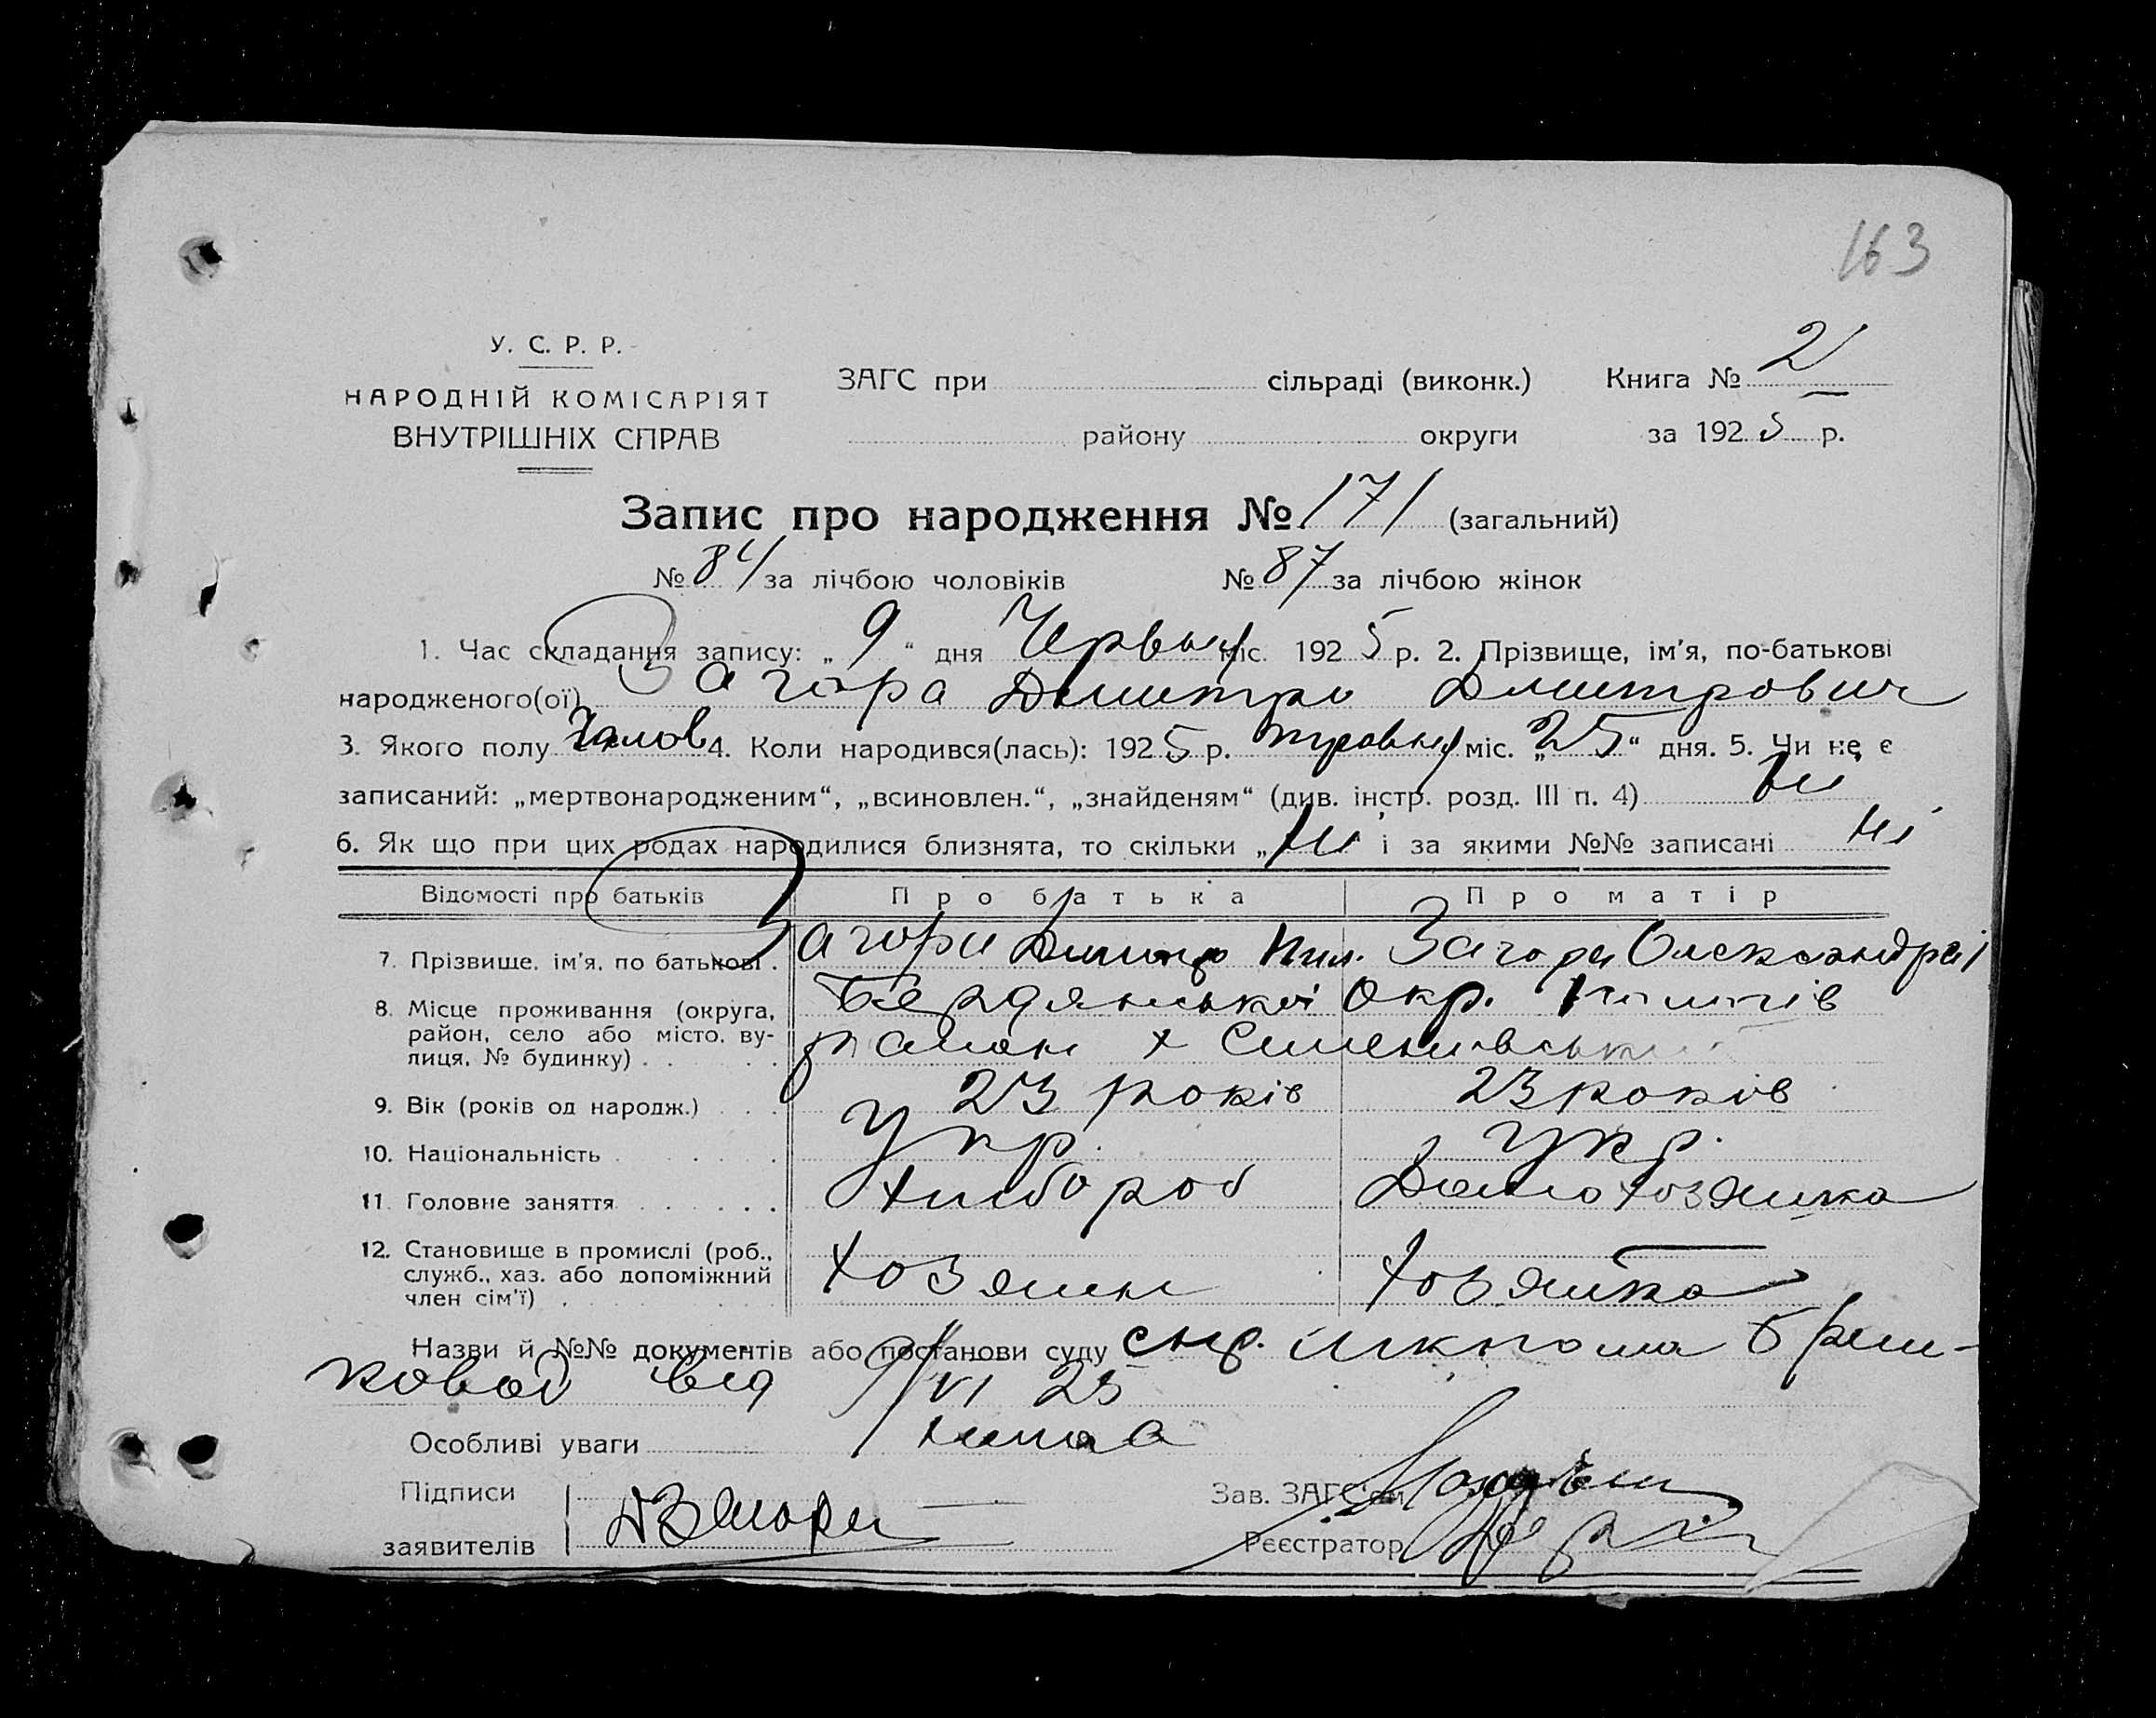 163
У. С. Р. Р.
НАРОДНІЙ КОМІСАРІЯТ
ВНУТРІШНІХ СПРАВ
ЗАГС при сільраді (виконк.)
району округи
Книга № 2
за 1925 р.
Запис про народження № 171 (загальний)
№ 84 за лічбою чоловіків № 87 за лічбою жінок
1. Час складання запису: „9" дня Червня міс. 1925 р. 2. Прізвище, ім'я, по-батькові
народженого(ої) Загора Дмитро Дмитрович
3. Якого полу Чолов 4. Коли народився(лась): 1925 р. травня міс. „25" дня. 5. Чи не є
записаний: „мертвонародженим", „всиновлен.", „знайденям" (див. інстр. розд. III п. 4) Ні
6. Як що при цих родах народилися близнята, то скільки „Ні" і за якими №№ записані Ні
Відомості про батьків Про батька Про матір
7. Прізвище, ім'я, по батькові . Загора Дмитро Загора Олександра
8. Місце проживання (округа, район, село або місто, вулиця, № будинку) . . . Бердянської Окр.
район х
9. Вік (років од народж.) . . . 23 років 23 років
10. Національність . . . . Укр. Укр.
11. Головне заняття . . . . . . Хлібороб Домохозяйка
12. Становище в промислі (роб.,
служб., хаз. або допоміжний
член сім'ї) . Хозяин Хозяйка
Назви й №№ документів або постанови суду
від 9/VI 25
Особливі уваги нема
Підписи
заявителів ДЗагора
Зав. ЗАГС'ом
Реєстратор